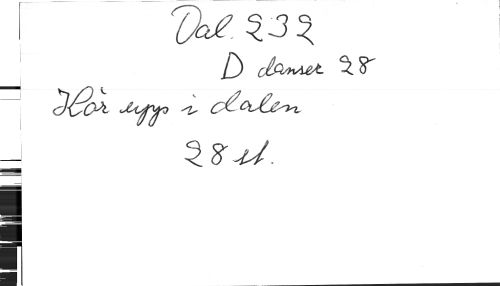 Dal. 232
D danser 28
Hör upp i dalen
28 st.